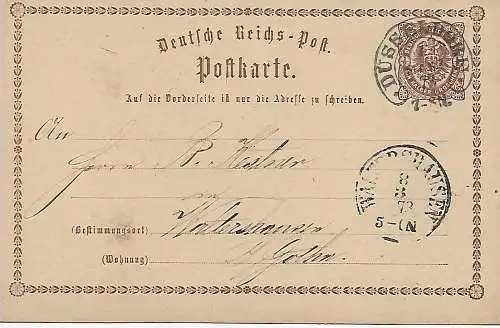 Deutsche Reichs-Post.
Postkarte.
DÜSSELDORF
Auf die Vorderseite ist nur die Adresse zu schreiben.
An
Herrn B.
in
WALTERSHAUSEN
8
3
73
5-6N
(Bestimmungsort) Waltershausen
(Wohnung) b/ Gotha.